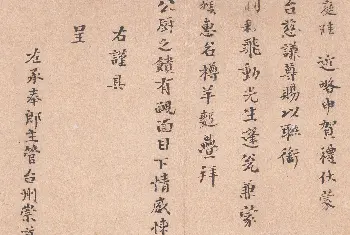 近略申賀禮伏蒙
台慈謙尊賜以聯銜
飛動光生蓬蓽兼蒙
惠名樽羊麪疊拜
公厨之饋有靦面目下情感悚
右謹具
呈
左承奉郎主管台州崇